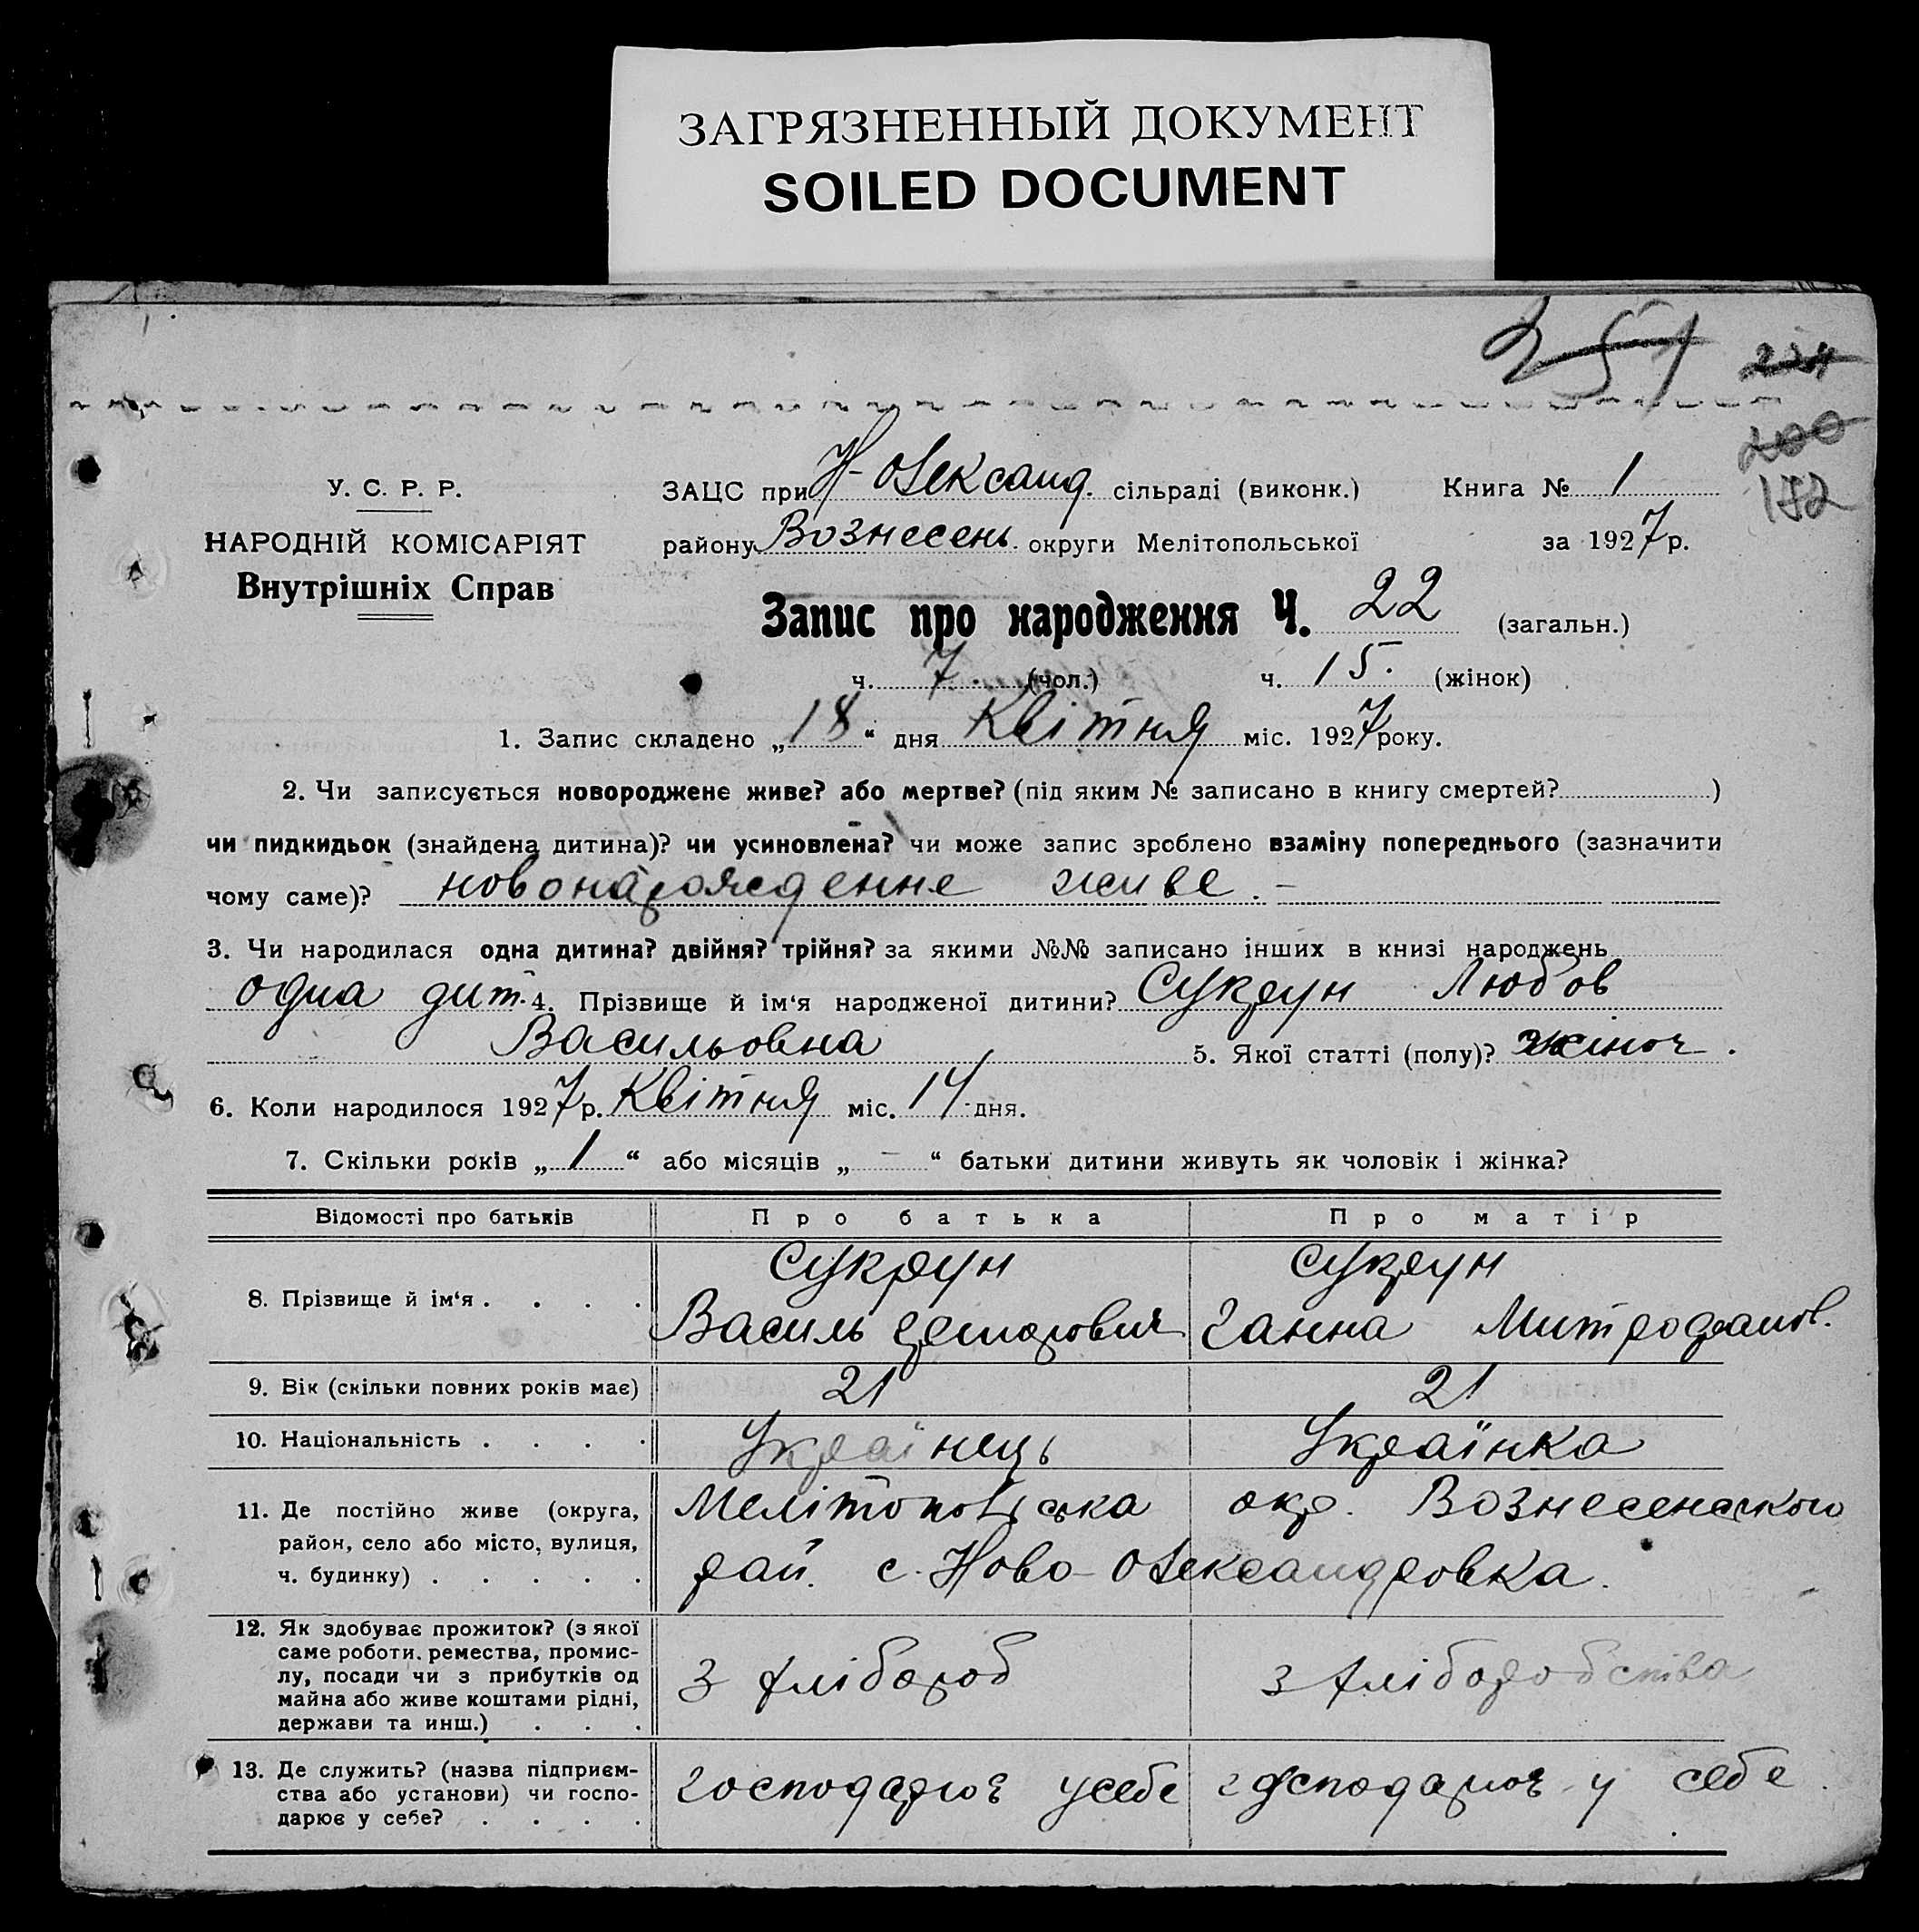 ЗАГРЯЗНЕННЫЙ ДОКУМЕНТ
SOILED DOCUMENT
251 234
200
172
У. С. Р. Р.
НАРОДНІЙ КОМІСАРІЯТ
Внутрішніх Справ
ЗАЦС при Н-Олександ. сільраді (виконк.) Книга № 1
району Вознесень. округи Мелітопольської за 1927 р.
Запис про народження Ч. 22 (загальн.)
ч. 7 (чол.) ч. 15. (жінок)
1. Запис складено „18“ дня Квітня міс. 1927 року.
2. Чи записується новороджене живе? або мертве? (під яким № записано в книгу смертей? )
чи пидкидьок (знайдена дитина)? чи усиновлена? чи може запис зроблено взаміну попереднього (зазначити
чому саме)? новонарожденне живе. –
3. Чи народилася одна дитина? двійня? трійня? за якими №№ записано інших в книзі народжень
одна дит. 4. Прізвище й ім‘я народженої дитини? Сукрун Любов
Васильовна 5. Якої статті (полу)? жіноч.
6. Коли народилося 1927 р. Квітня міс. 14 дня.
7. Скільки років „1“ або місяців „–“ батьки дитини живуть як чоловік і жінка?
Відомості про батьків Про батька Про матір
8. Прізвище й ім‘я . . . . Сукрун Сукрун
Василь Ганна Митрофанов.
9. Вік (скільки повних років має) 21 21
10. Національність . . . . Українець Українка
11. Де постійно живе (округа, район, село або місто, вулиця, ч. будинку) . . . . . Мелітопольська окр. Вознесенського
рай. с. Ново-Олександровка.
12. Як здобуває прожиток? (з якої саме роботи, ремества, промислу, посади чи з прибутків од майна або живе коштами рідні, держави та инш.) . . . З хлібороб З хліборобства
13. Де служить? (назва підприємства або установи) чи господарює у себе? . . . . господарює усебе господарює у себе.